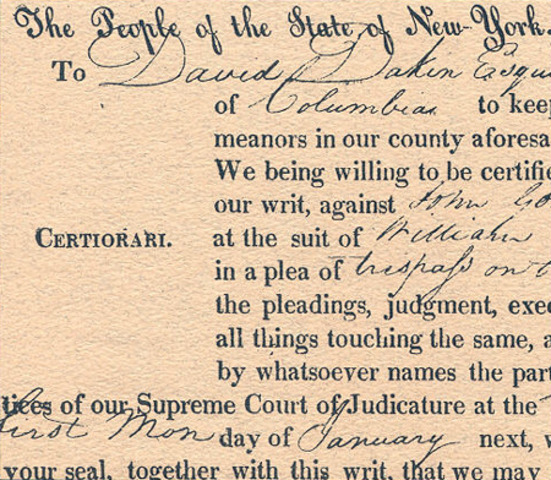 The People of the State of New-York.
To David Dakin Esqu
of Columbia to keep
meanors in our county aforesa
We being willing to be certifie
our writ, against John Go
CERTIORARI. at the suit of William
in a plea of trespass on t
the pleadings, judgment, exec
all things touching the same, a
by whatsoever names the part
tices of our Supreme Court of Judicature at the
first Mon day of January next, w
your seal, together with this writ, that we may